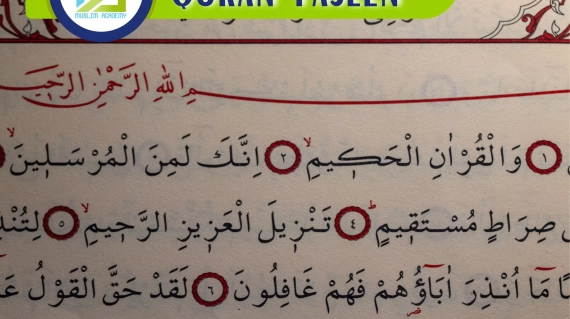 MUSLIM ACADEMY
QURAN YASEEN
مِ اللهِ الرَّحْمٰنِ الرَّحِيمِ
١ وَالْقُرْاٰنِ الْحَكِيمِ ٢ اِنَّكَ لَمِنَ الْمُرْسَلِينَ
صِرَاطٍ مُسْتَقِيمٍ ٤ تَنْزِيلَ الْعَزِيزِ الرَّحِيمِ ٥ لِتُنْذِ
مَٓا اُنْذِرَ اٰبَٓاؤُ۬هُمْ فَهُمْ غَافِلُونَ ٦ لَقَدْ حَقَّ الْقَوْلُ